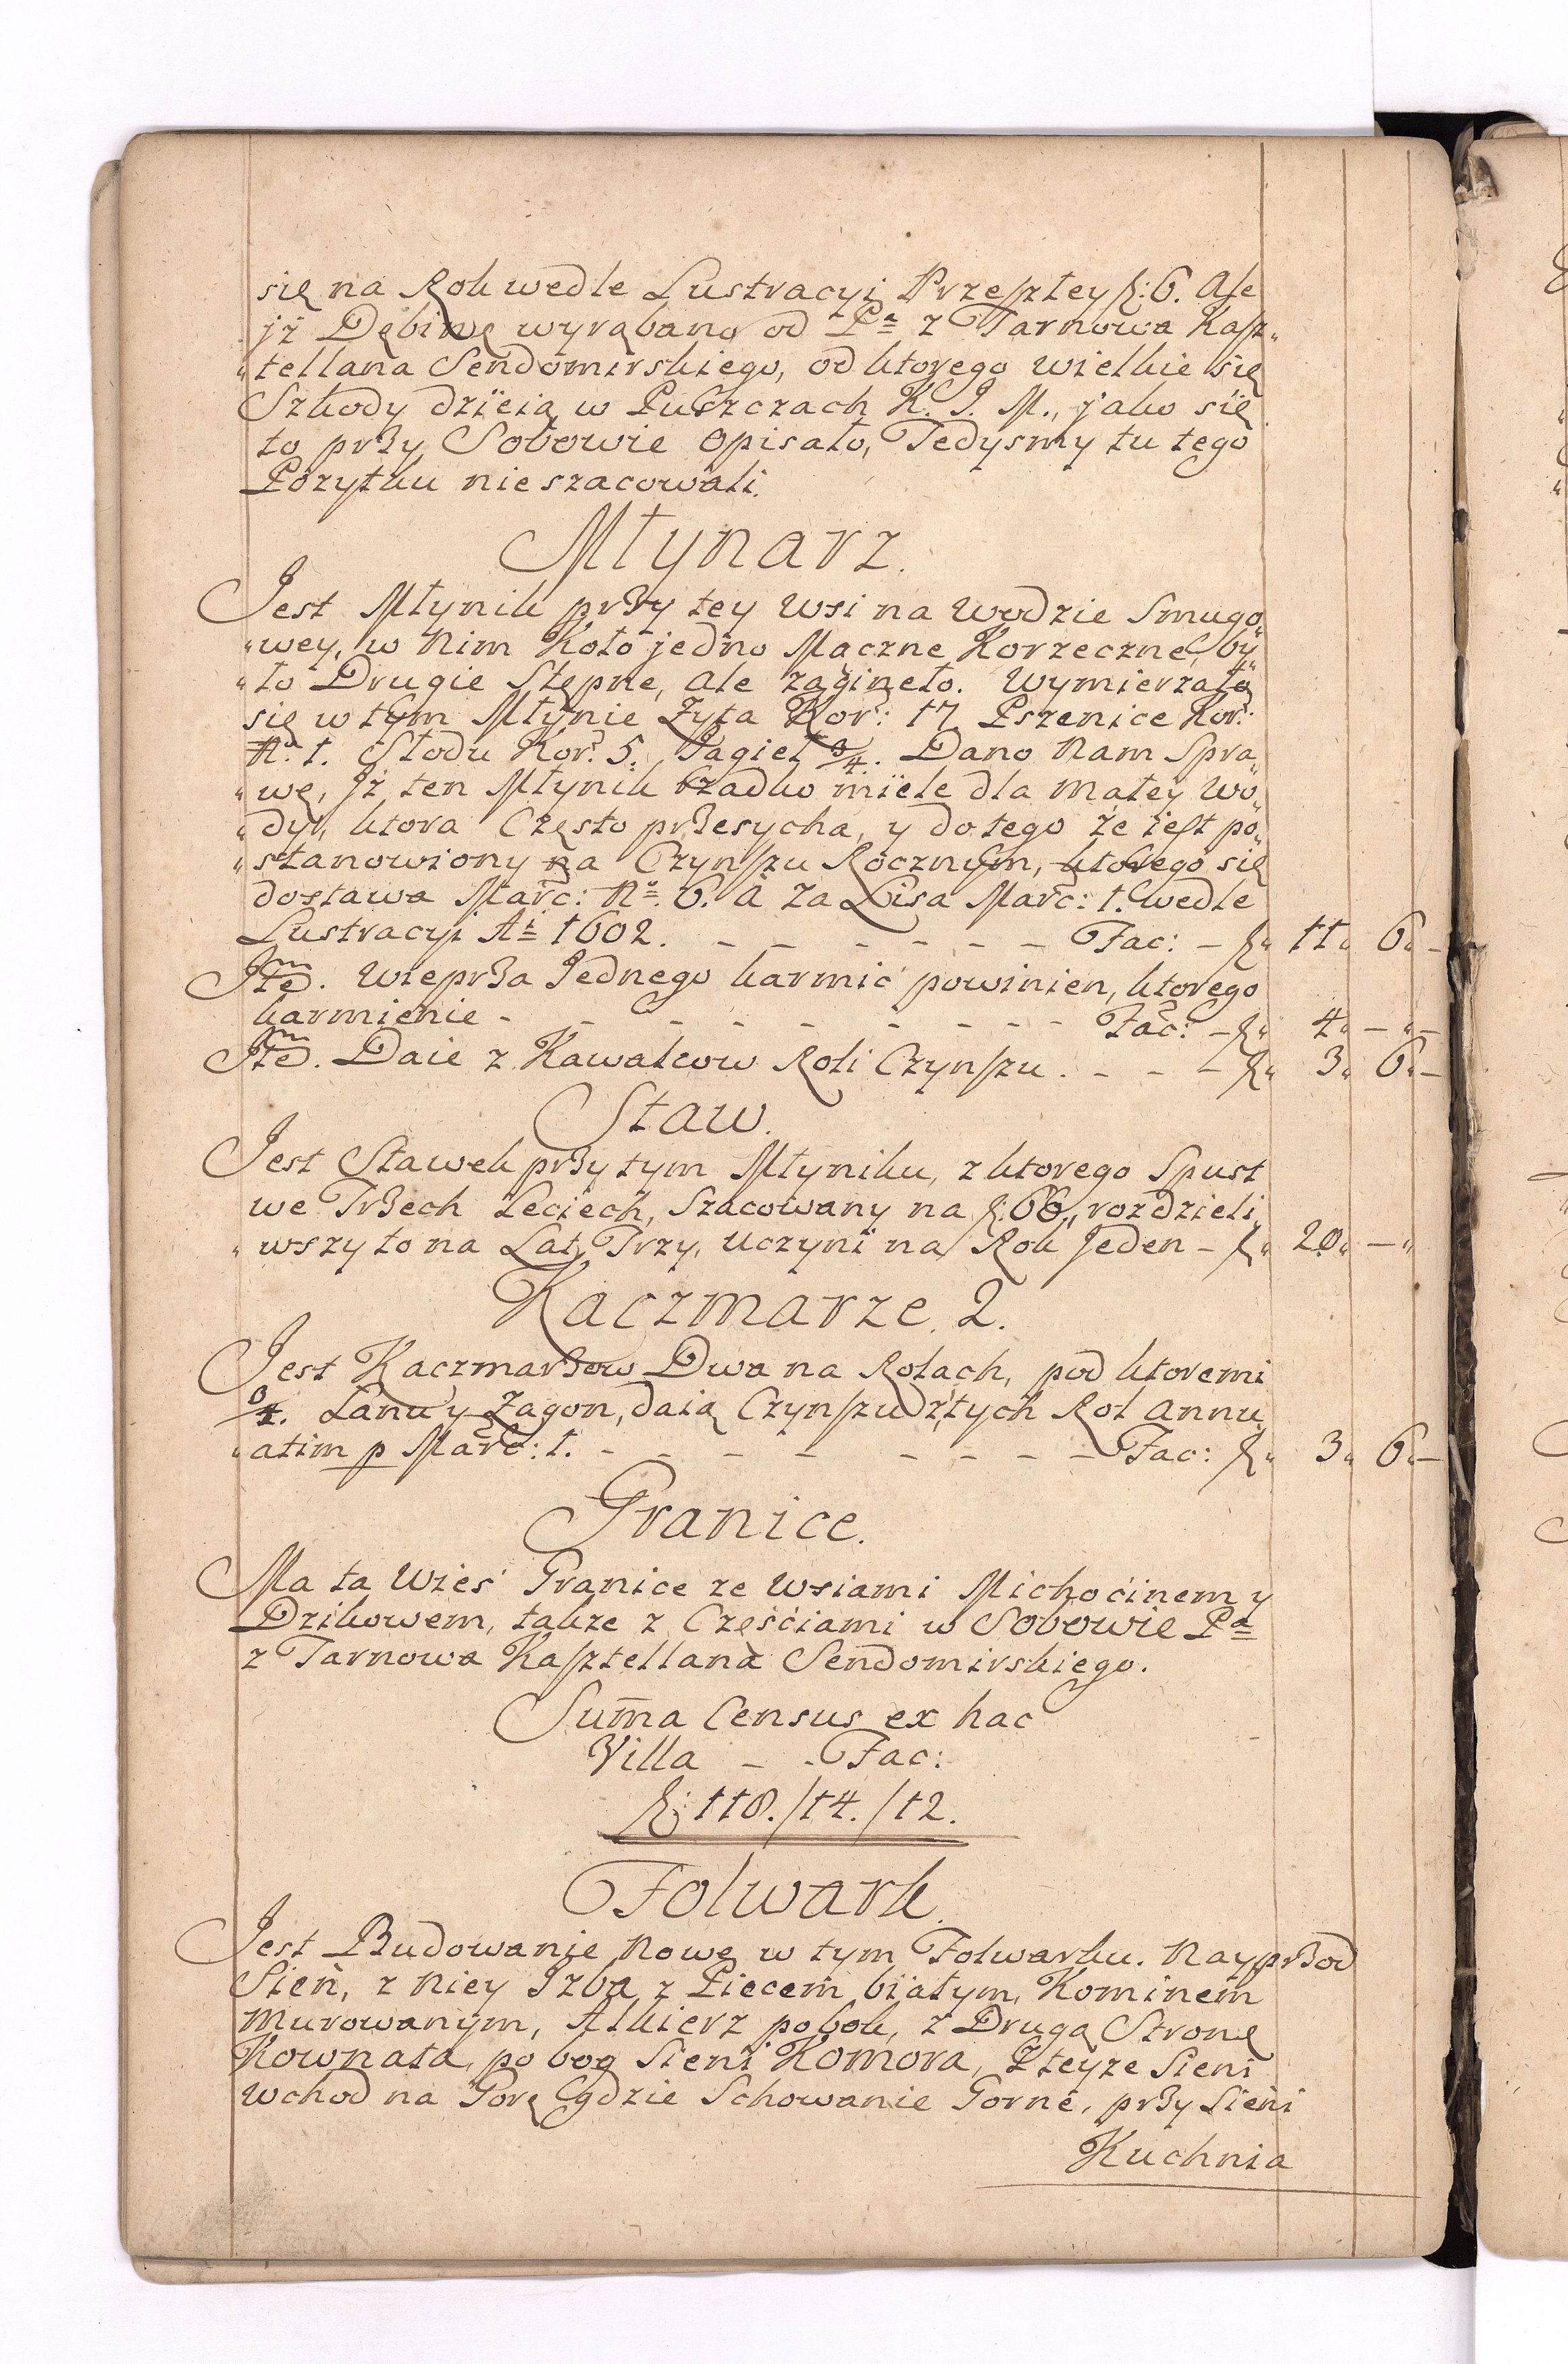 się na Rok wedle Lustracyi Przeszłey f: 6. Ale
jż Dębinę wyrąbano od Pa z Tarnowa Kasz„
„tellana Sendomirskiego, od ktorego wielkie się
Szkody dzieią w Puszczach K. J. M., jako się
to przy Sobowie opisało, Tedysmy tu tego
Pozytku nie szacowali.
Młynarz.
Jest Młynik przy tey Wsi na Wodzie Smugo„
„wey, w Nim Koło jedno Mączne Korzeczne, by„
„ło Drugie Stępne, ale zagineło. Wymierzało
się w tym Młynie Zyta Kor: 17 Pszenice Kor:
No. 1. Słodu Kor: 5. Jagieł 3/4. Dano Nam Spra„
„wę, Jż ten Młynik rzadko miele dla małey Wo„
„dy, ktora Często przesycha, y do tego że iest po„
„stanowiony na Czynszu Rocznym, ktorego się
dostawa Marc: No. 6. à za Lisa Marc: 1. wedle
Lustracyi Ai 1602. - - - - - - - Fac: - f„ 11„ 6„ -
Item. Wieprza Jednego karmić powinien, ktorego
karmienie - - - - - - - - - - Fac: - f„ 4„ - „ -
Item. Daie z Kawałcow Roli Czynszu . - - - f„ 3„ 6„ -
Staw.
Jest Stawek przy tym Młyniku, z ktorego Spust
we Trzech Leciech, Szacowany na f: 60„ rozdzieli„
„wszy to na Lat Trzy, uczyni na Rok Jeden - f„ 20„ - „
Kaczmarze. 2.
Jest Kaczmarzow Dwa na Rolach, pod ktoremi
3/4. Łanu y Zagon, daią Czynszu z tych Rol annu„
„atim p Marc: 1. - - - - - - - - - Fac: f„ 3„ 6„ -
Granice.
Ma ta Wieś Granice ze Wsiami Michocinem y
Dzikowem, także z Częściami w Sobowie Pa
z Tarnowa Kasztellana Sendomirskiego.
Suma Census ex hac
Villa - - Fac:
f: 118./14./12.
Folwark.
Jest Budowanie Nowe w tym Folwarku. Nayprzod
Sień, z Niey Jzba z Piecem białym, Kominem
Murowanym, Alkierz pobok, z Drugą Stronę
Kownata, po bog Sieni Komora, Z teyze Sieni
Wchod na Gorę gdzie Schowanie Gorne, przy Sieni
Kuchnia